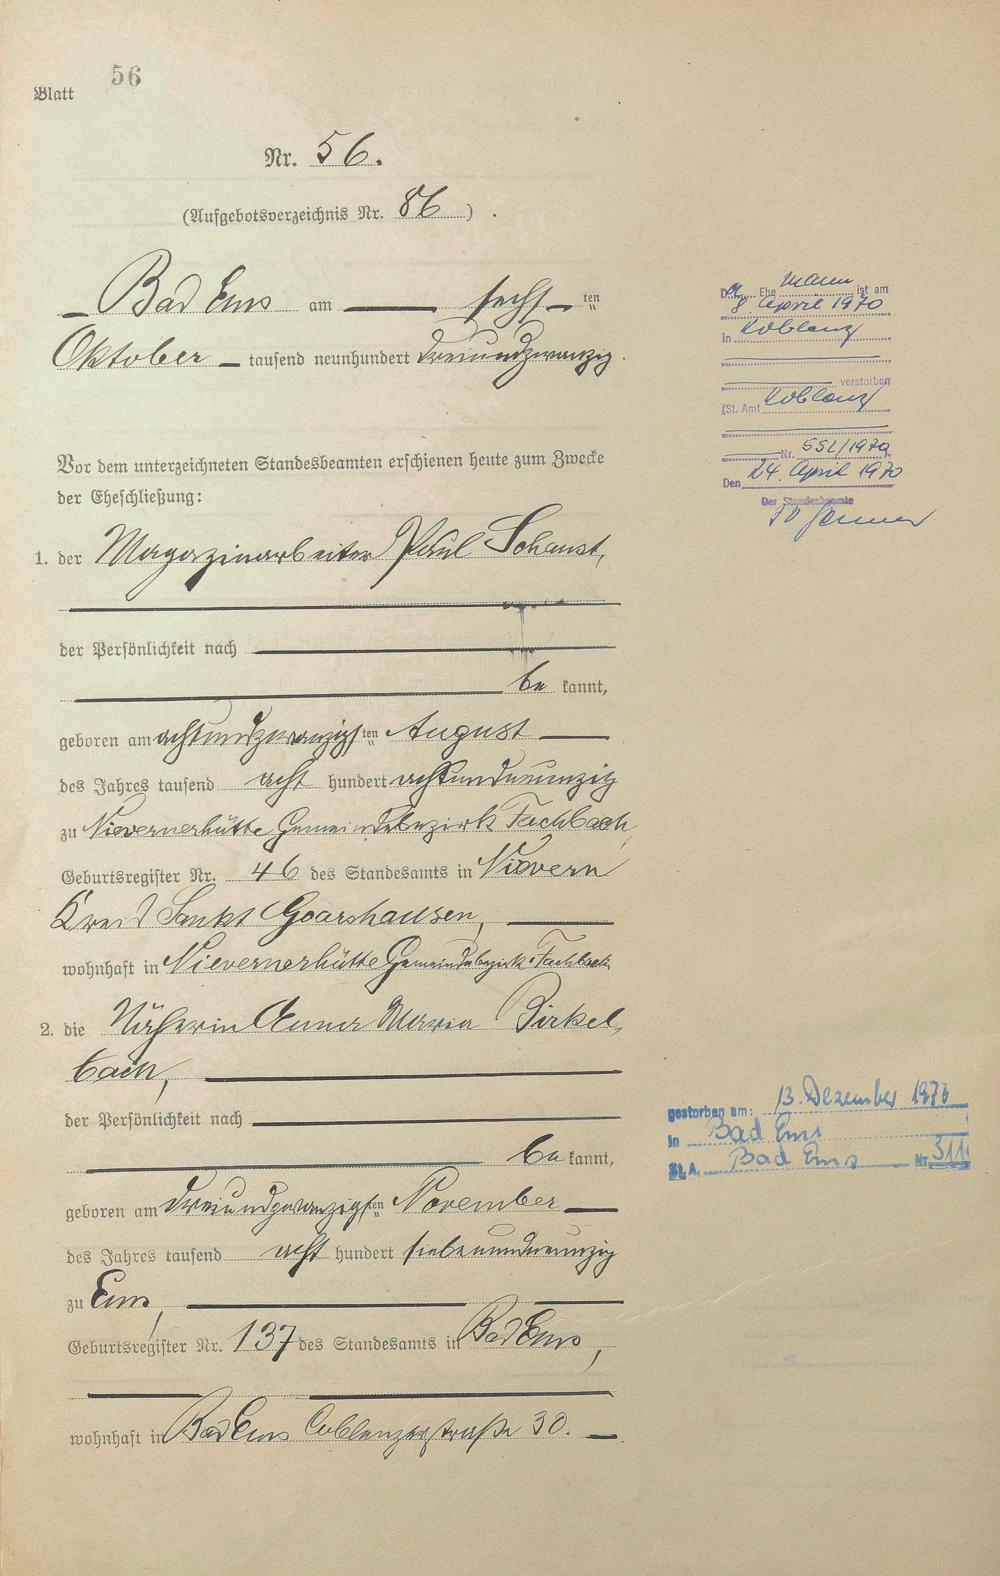 Blatt 56
Nr. 56.
(Aufgebotsverzeichnis Nr. 86)
Bad Ems am sechsten
Oktober tausend neunhundert dreiundzwanzig.
Vor dem unterzeichneten Standesbeamten erschienen heute zum Zwecke
der Eheschließung:
1. der Magazinarbeiter Paul Schaust,
der Persönlichkeit nach
be kannt,
geboren am achtundzwanzigsten August
des Jahres tausend acht hundert achtundneunzig
zu Nievernerhütte Gemeindebezirk Fachbach,
Geburtsregister Nr. 46 des Standesamts in Nievern
Kreis Sankt Goarshausen,
wohnhaft in Nievernerhütte Gemeindebezirk Fachbach,
2. die Näherin Anna Maria Birkel-
bach,
der Persönlichkeit nach
be kannt,
geboren am dreiundzwanzigsten November
des Jahres tausend acht hundert siebenundneunzig
zu Ems,
Geburtsregister Nr. 137 des Standesamts in Bad Ems,
wohnhaft in Bad Ems Coblenzerstraße 30.
Der Ehe mann ist am
8. April 1970
in Koblenz
verstorben
(St. Amt Koblenz
Nr. 552/1970)
Den 24. April 1970
Der Standesbeamte
gestorben am: 13. Dezember 1973
in Bad Ems
St. A. Bad Ems Nr. 311